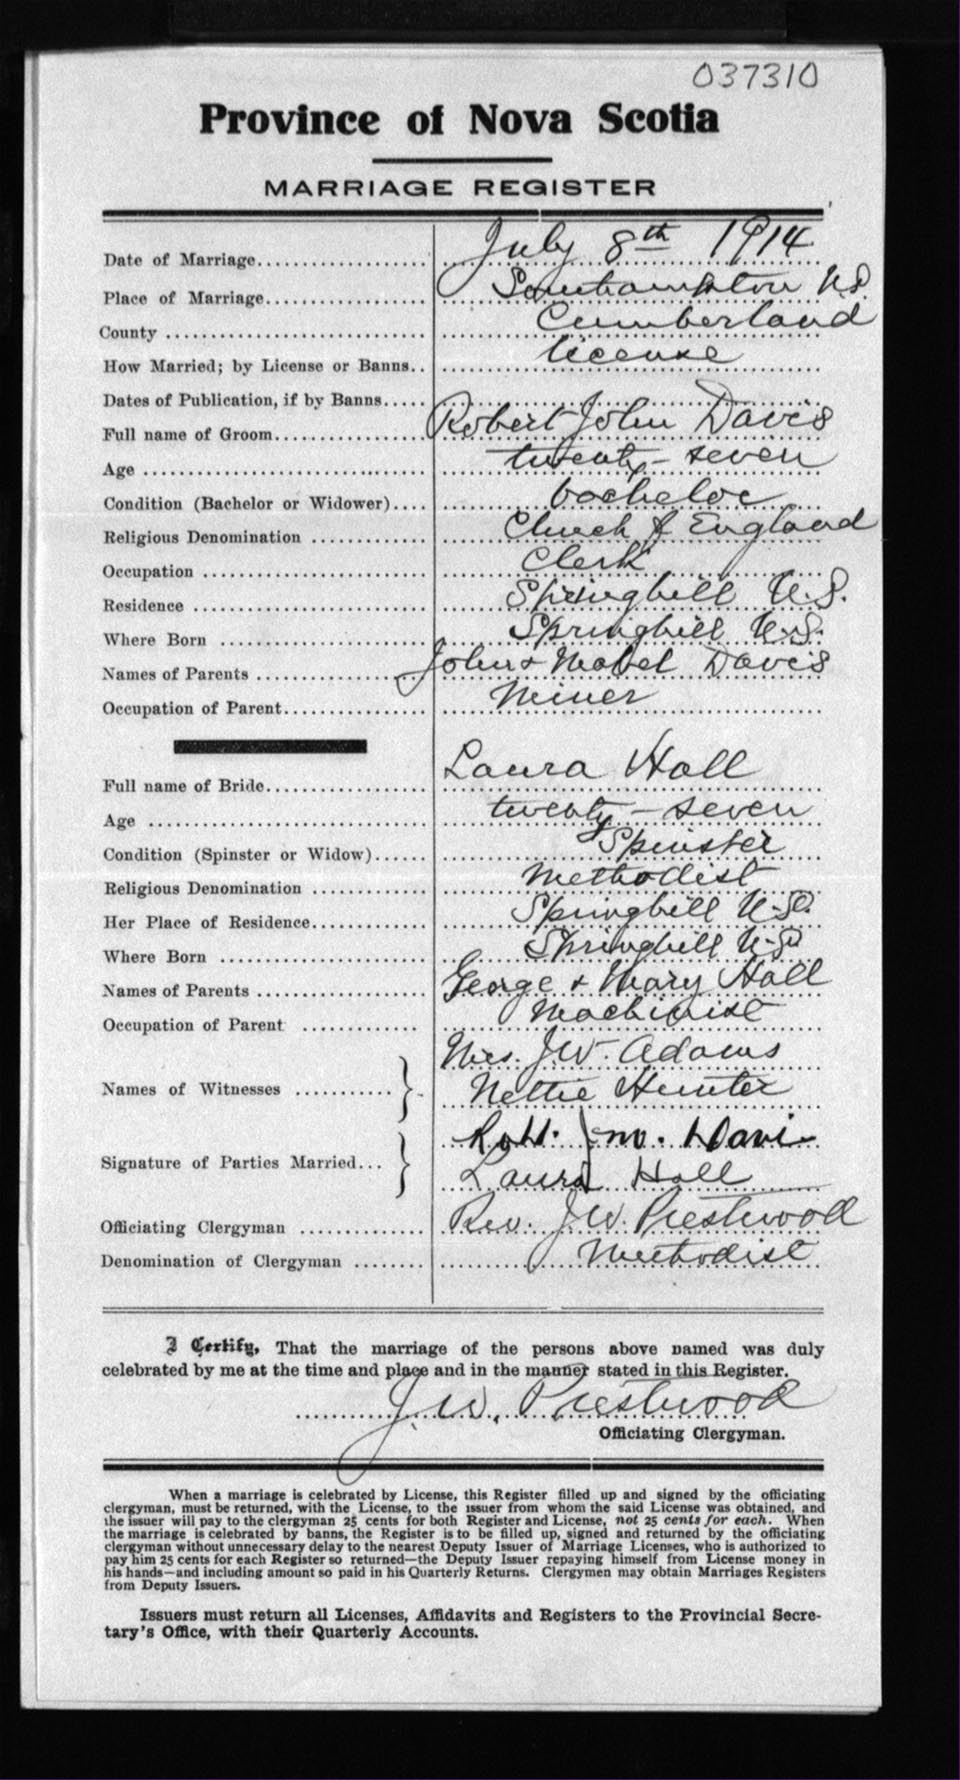 037310
Province of Nova Scotia
MARRIAGE REGISTER
Date of Marriage.................... July 8th 1914
Place of Marriage................... Southampton N.S.
County .............................. Cumberland
How Married; by License or Banns.. license
Dates of Publication, if by Banns.....
Full name of Groom.................. Robert John Davis
Age .................................. twenty-seven
Condition (Bachelor or Widower).... bachelor
Religious Denomination .............. Church of England
Occupation .......................... Clerk
Residence ........................... Springhill N.S.
Where Born ......................... Springhill N.S.
Names of Parents ................... John & Mabel Davis
Occupation of Parent................ Miner
Full name of Bride................... Laura Hall
Age .................................. twenty-seven
Condition (Spinster or Widow)...... Spinster
Religious Denomination .............. Methodist
Her Place of Residence.............. Springhill N.S.
Where Born ......................... Springhill N.S.
Names of Parents ................... George & Mary Hall
Occupation of Parent ............... Machinist
Mrs. J.W. Adams
Names of Witnesses ............ Nettie Hunter
Robt. Jno. Davis
Signature of Parties Married... Laura Hall
Officiating Clergyman ............... Rev. J.W. Prestwood
Denomination of Clergyman ........ Methodist
I Certify, That the marriage of the persons above named was duly
celebrated by me at the time and place and in the manner stated in this Register.
J. W. Prestwood
Officiating Clergyman.
When a marriage is celebrated by License, this Register filled up and signed by the officiating
clergyman, must be returned, with the License, to the issuer from whom the said License was obtained, and
the issuer will pay to the clergyman 25 cents for both Register and License, not 25 cents for each. When
the marriage is celebrated by banns, the Register is to be filled up, signed and returned by the officiating
clergyman without unnecessary delay to the nearest Deputy Issuer of Marriage Licenses, who is authorized to
pay him 25 cents for each Register so returned—the Deputy Issuer repaying himself from License money in
his hands—and including amount so paid in his Quarterly Returns. Clergymen may obtain Marriages Registers
from Deputy Issuers.
Issuers must return all Licenses, Affidavits and Registers to the Provincial Secre-
tary's Office, with their Quarterly Accounts.